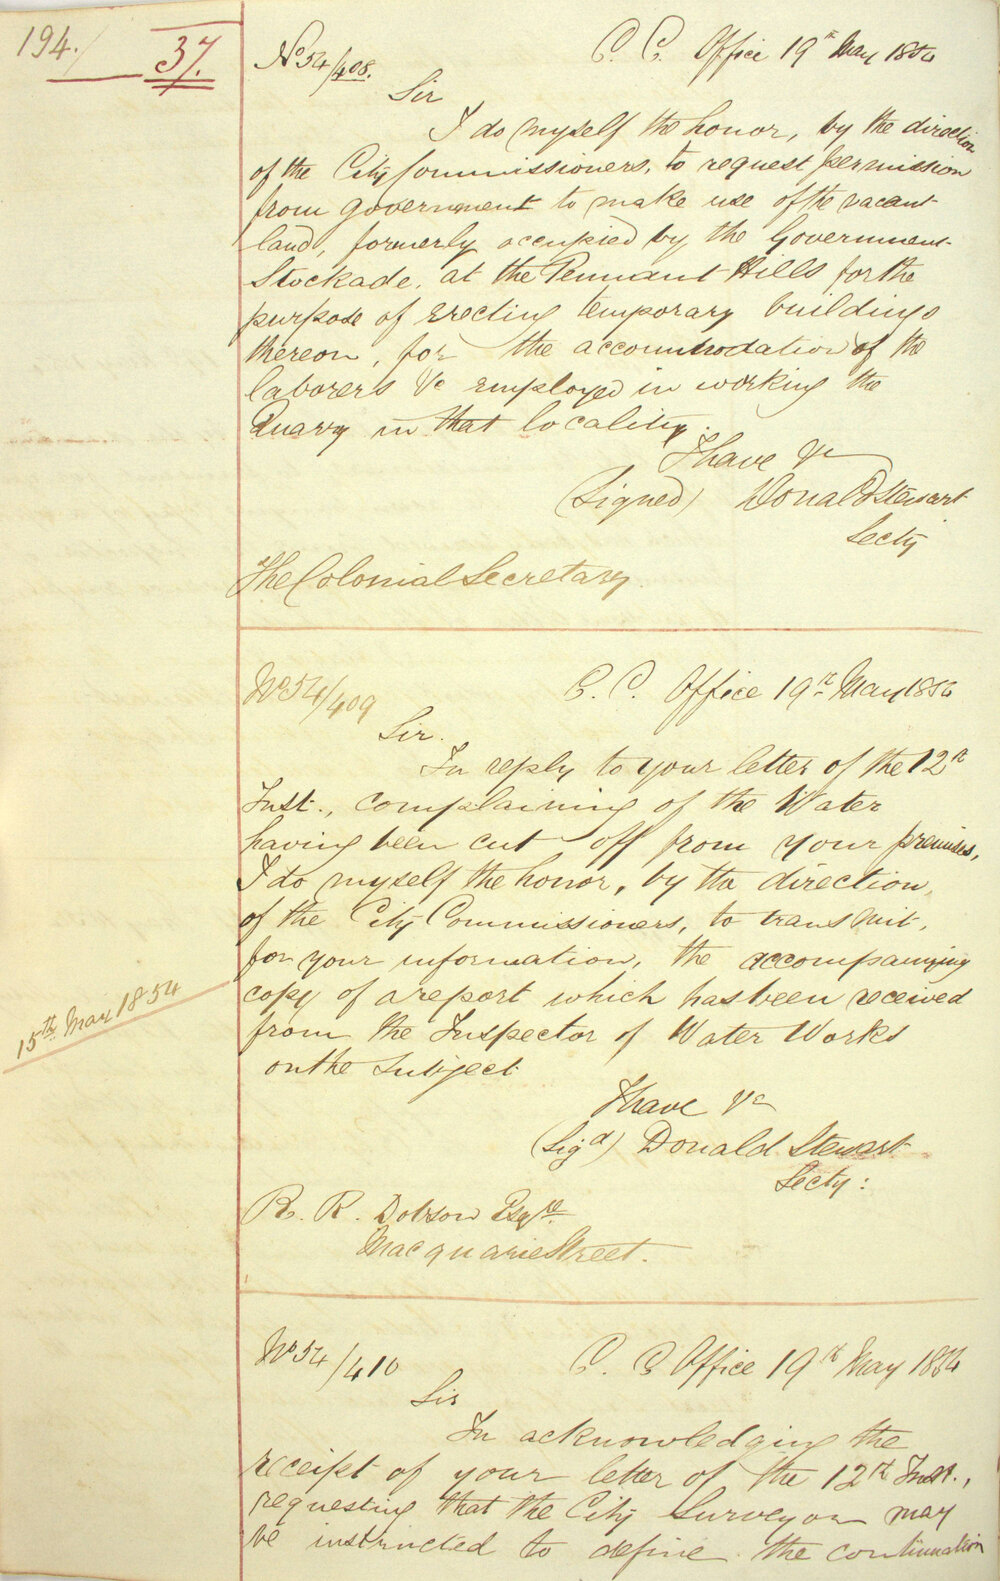 194. 37.
No 54/408. C. C. Office 19th May 1854
Sir
I do myself the honor, by the direction
of the City Commissioners, to request permission
from government to make use of the vacant
land, formerly occupied by the Government
Stockade, at the Pennant Hills for the
purpose of erecting temporary buildings
thereon, for the accommodation of the
laborers &c employed in working the
Quarry in that locality.
I have &c
(Signed) Donald Stewart
Secty
The Colonial Secretary.
No 54/409 C. C. Office 19th May 1854
Sir.
In reply to your letter of the 12th
Inst., complaining of the Water
having been cut off from your premises,
I do myself the honor, by the direction,
of the City Commissioners, to transmit,
for your information, the accompanying
copy of a report which has been received
15th May 1854
from the Inspector of Water Works
on the subject
I have &c
(Sigd) Donald Stewart
Secty:
R. R. Dobson Esqre
Macquarie Street.
No 54/410 C. C Office 19th May 1854
Sir
In acknowledging the
receipt of your letter of the 12th Inst.,
requesting that the City Surveyor may
be instructed to define the continuation